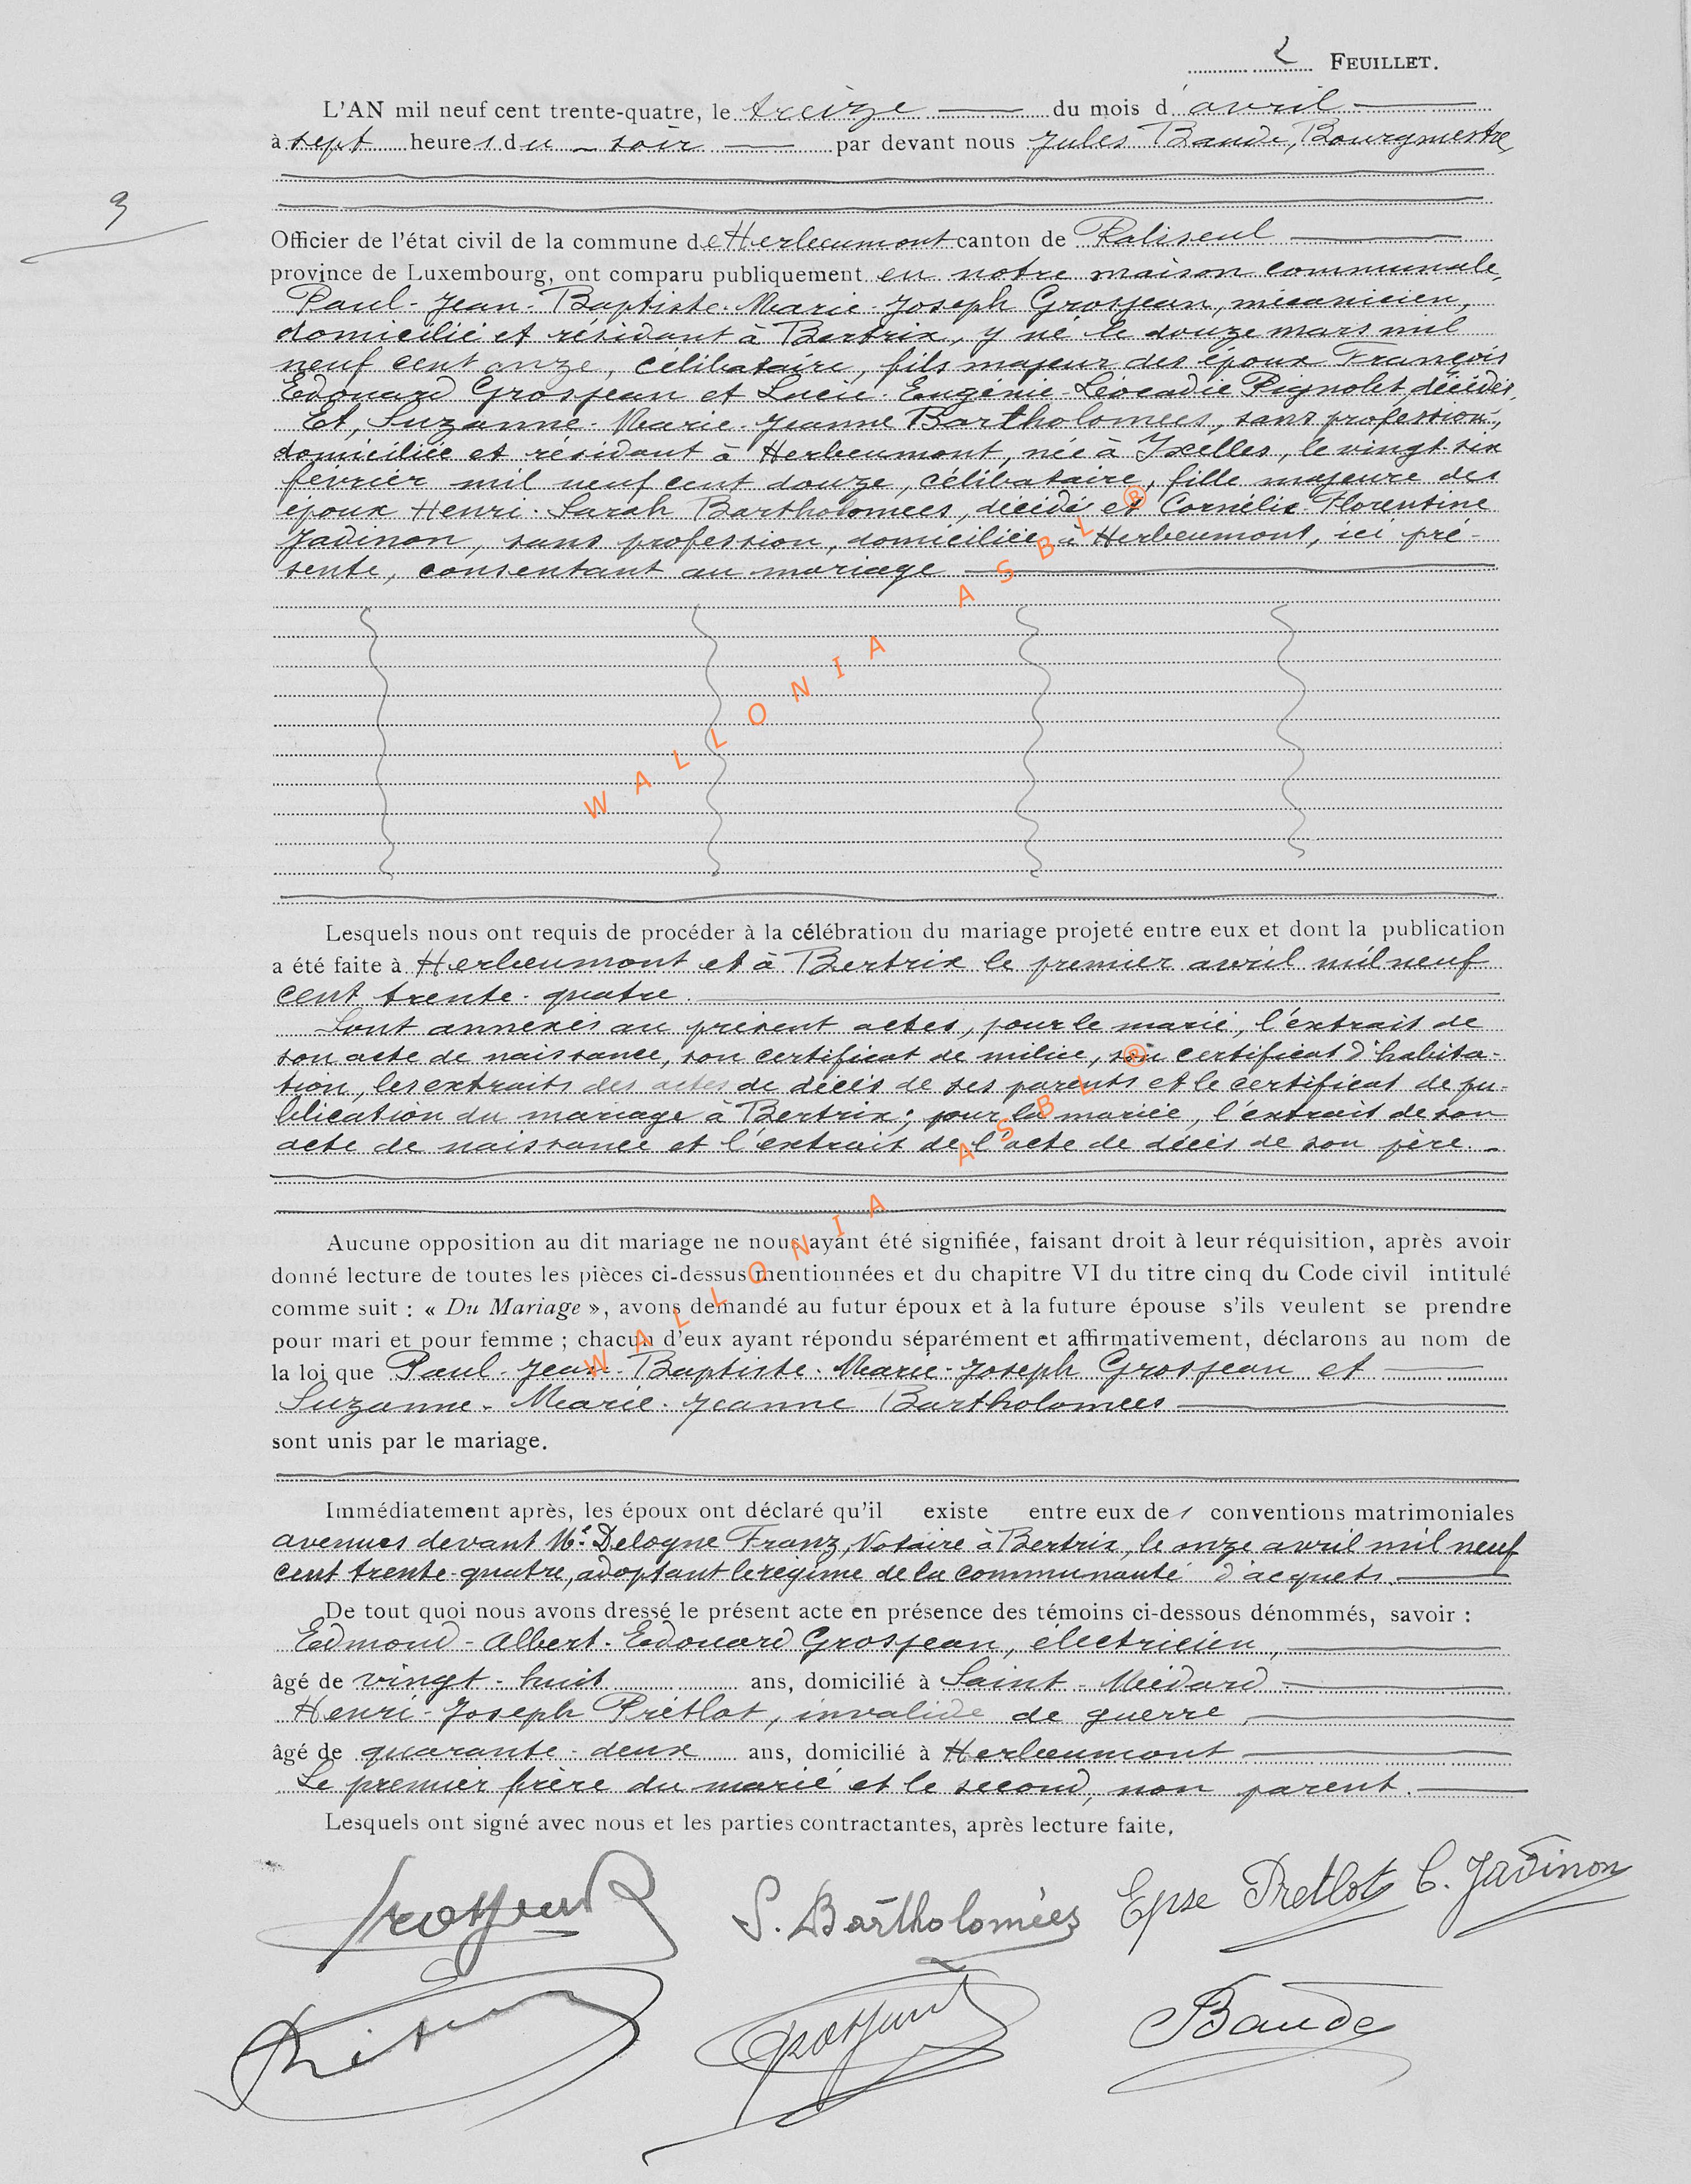 2 FEUILLET.
L'AN mil neuf cent trente-quatre, le treize du mois d'avril
à sept heures du soir par devant nous Jules Baude, Bourgmestre,
3
Officier de l'état civil de la commune de Herbeumont canton de Paliseul
province de Luxembourg, ont comparu publiquement en notre maison communale,
Paul-Jean-Baptiste-Marie-Joseph Grosjean, mécanicien,
domicilié et résidant à Bertrix, y né le douze mars mil
neuf cent onze, célibataire, fils majeur des époux François
Edouard Grosjean et Lucie-Eugénie-Léocadie Pignolet, décédés.
Et, Suzanne-Marie-Jeanne Bartholomees, sans profession,
domiciliée et résidant à Herbeumont, née à Ixelles, le vingt-six
février mil neuf cent douze, célibataire, fille majeure des
époux Henri-Sarah Bartholomees, décédé et Cornélie-Florentine
Jadinon, sans profession, domiciliée à Herbeumont, ici pré-
sente, consentant au mariage
WALLONIA ASBL ®
Lesquels nous ont requis de procéder à la célébration du mariage projeté entre eux et dont la publication
a été faite à Herbeumont et à Bertrix le premier avril mil neuf
cent trente-quatre.
Sont annexés au présent actes, pour le marié, l'extrait de
son acte de naissance, son certificat de milice, son certificat d'habita-
tion, les extraits des actes de décès de ses parents et le certificat de pu-
blication du mariage à Bertrix; pour la mariée, l'extrait de son
acte de naissance et l'extrait de l'acte de décès de son père.
WALLONIA ASBL ®
Aucune opposition au dit mariage ne nous ayant été signifiée, faisant droit à leur réquisition, après avoir
donné lecture de toutes les pièces ci-dessus mentionnées et du chapitre VI du titre cinq du Code civil intitulé
comme suit : « Du Mariage », avons demandé au futur époux et à la future épouse s'ils veulent se prendre
pour mari et pour femme ; chacun d'eux ayant répondu séparément et affirmativement, déclarons au nom de
la loi que Paul-Jean-Baptiste-Marie-Joseph Grosjean et
Suzanne-Marie-Jeanne Bartholomees
sont unis par le mariage.
Immédiatement après, les époux ont déclaré qu'il existe entre eux des conventions matrimoniales
avenues devant Me Delogne Franz, Notaire à Bertrix, le onze avril mil neuf
cent trente-quatre, adoptant le régime de la communauté d'acquets.
De tout quoi nous avons dressé le présent acte en présence des témoins ci-dessous dénommés, savoir :
Edmond-Albert-Edouard Grosjean, électricien,
âgé de vingt-huit ans, domicilié à Saint-Médard
Henri-Joseph Prétlot, invalide de guerre,
âgé de quarante-deux ans, domicilié à Herbeumont
Le premier frère du marié et le second, non parent.
Lesquels ont signé avec nous et les parties contractantes, après lecture faite.
Grosjean S. Bartholomées Epse Pretlot C. Jadinon
Grosjean Baude